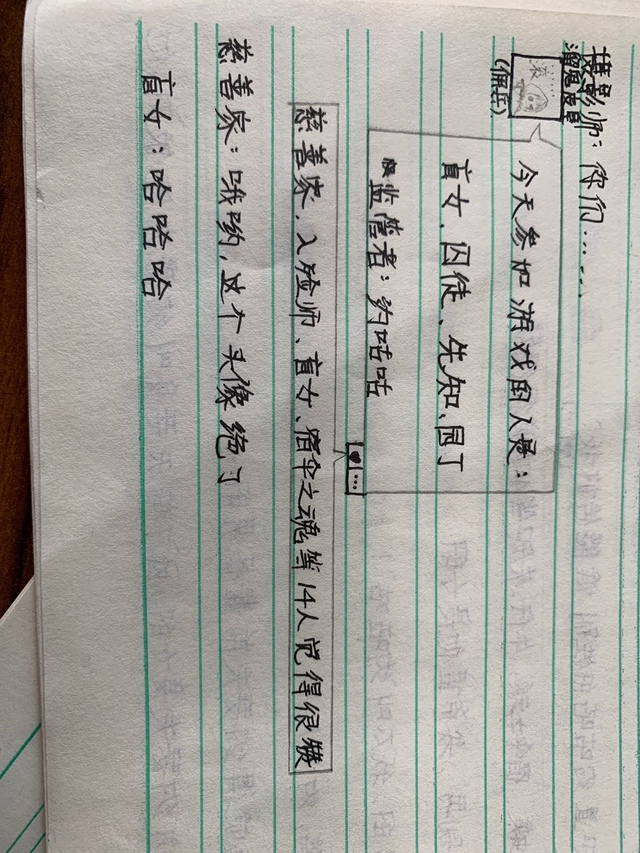 摄影师：你们……
(佣兵)
滚
今天参加游戏的人员：
盲女、囚徒、先知、园丁
监管者：约咕咕
慈善家、入殓师、盲女、宿伞之魂等14人觉得很赞
慈善家：哦哟，这个头像绝了
盲女：哈哈哈